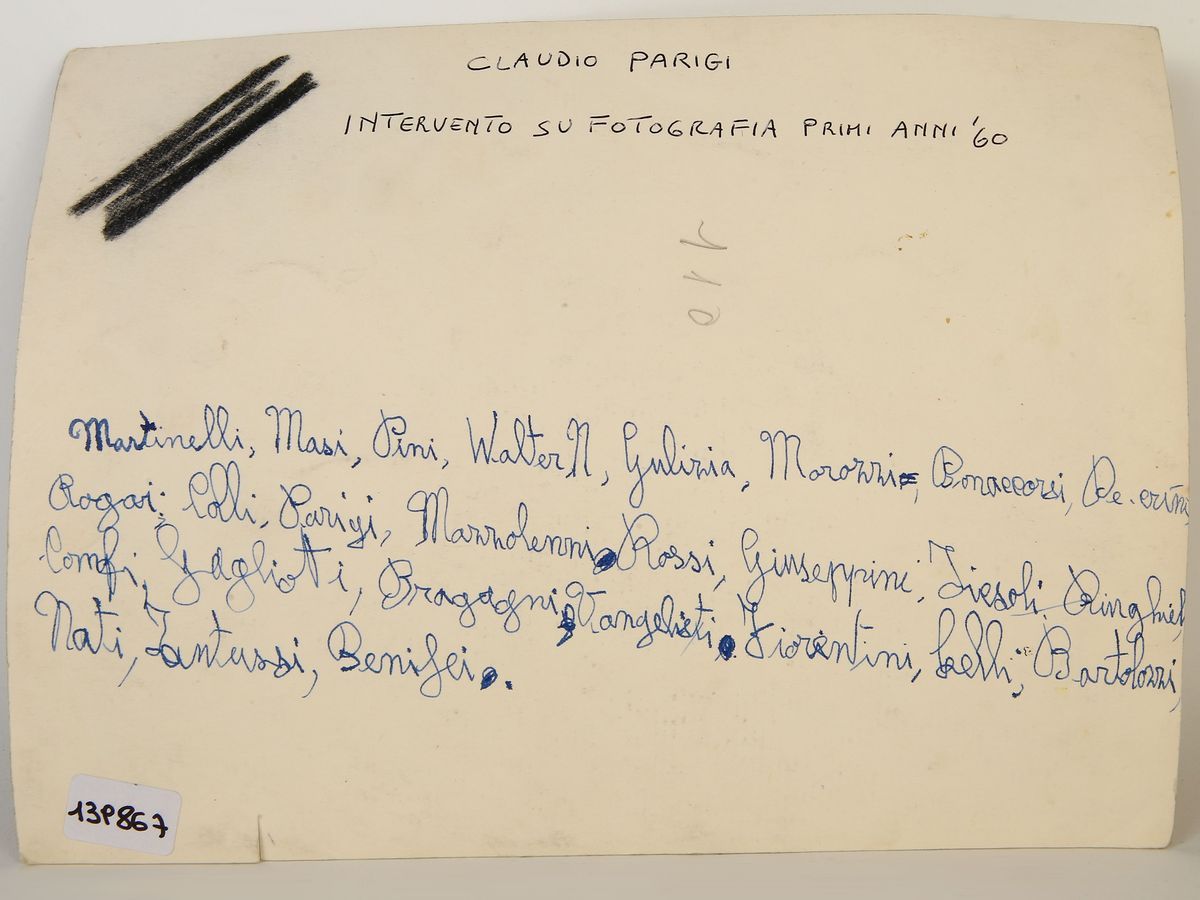 CLAUDIO PARIGI
INTERVENTO SU FOTOGRAFIA PRIMI ANNI '60
110
Martinelli, Masi, Pini, Walter N, Gulizia, Morozzi, Bonaccorsi,
Rogai, Colli, Parigi, Mazzolenni, Rossi, Giuseppini, Fiesoli,
Comfi, Gaglioti, Bragagni, Vangelisti, Fiorentini, Lelli, Bartolozzi,
Nati, Fantussi, Benifei.
13P867